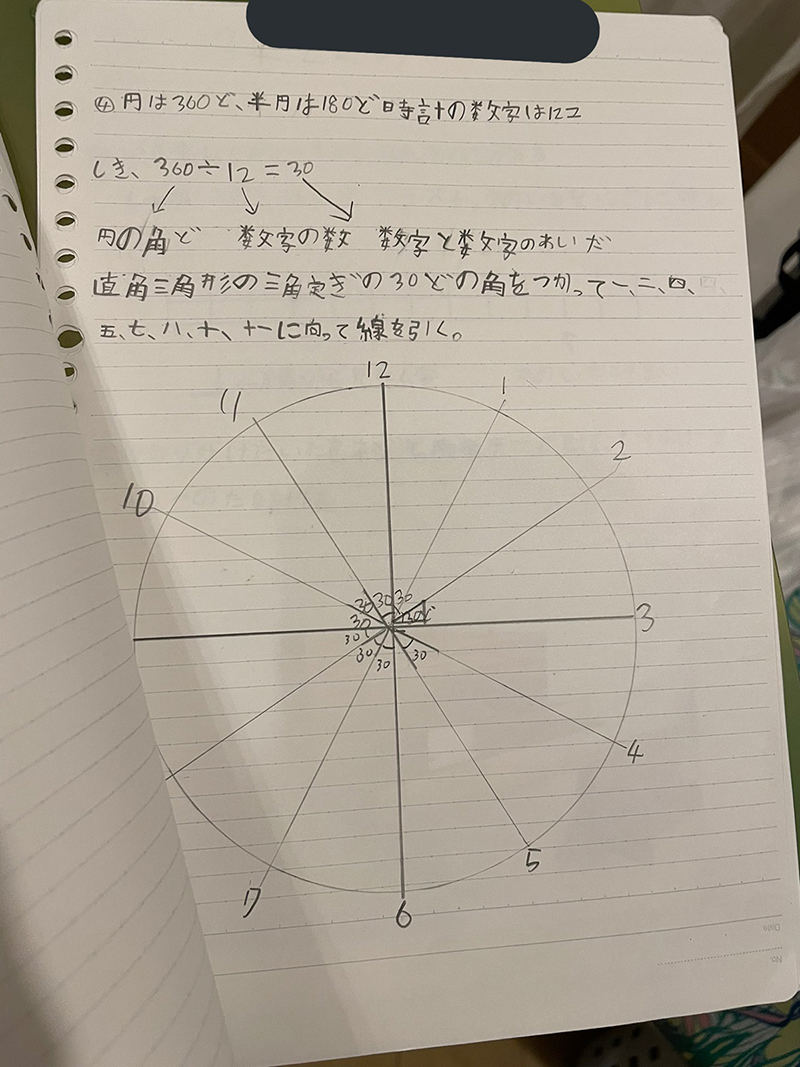 ④ 円は360ど、半円は180ど 時計の数字は12コ
しき、360÷12=30
円の角ど 数文字の数 数字と数文字のあいだ
直角三角形の三角定ぎの30どの角をつかって一、二、四、
五、七、八、十、十一に向って線を引く。
12
11
1
10
2
30 30 30
30 30ど
3
30
30 30 30
4
5
7
6
Date
No.